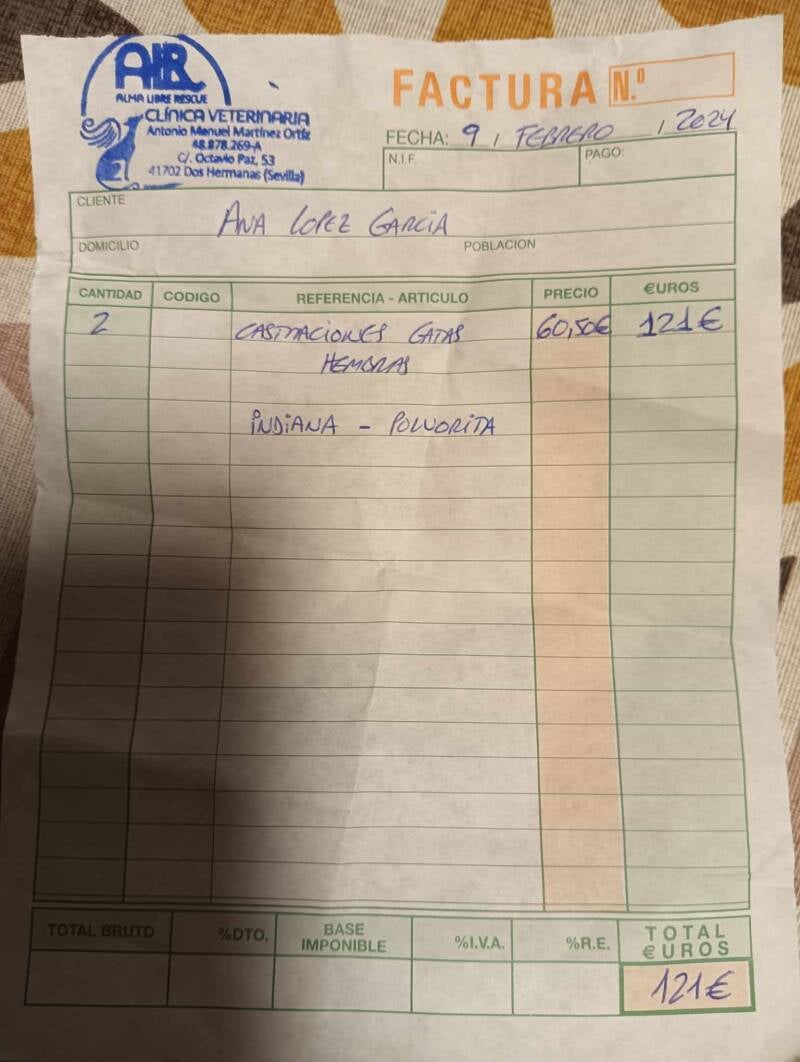 ALR
ALMA LIBRE RESCUE
CLÍNICA VETERINARIA
Antonio Manuel Martínez Ortiz
48.878.269-A
C/. Octavio Paz, 53
41702 Dos Hermanas (Sevilla)
FACTURA N.º
FECHA: 9 / FEBRERO / 2024
N.I.F. PAGO:
CLIENTE
ANA LOPEZ GARCIA
DOMICILIO POBLACION
CANTIDAD CODIGO REFERENCIA - ARTICULO PRECIO €UROS
2 CASTRACIONES GATAS 60,50€ 121€
HEMBRAS
INDIANA - POLVORITA
TOTAL BRUTO %DTO. BASE IMPONIBLE %I.V.A. %R.E. TOTAL €UROS
121€